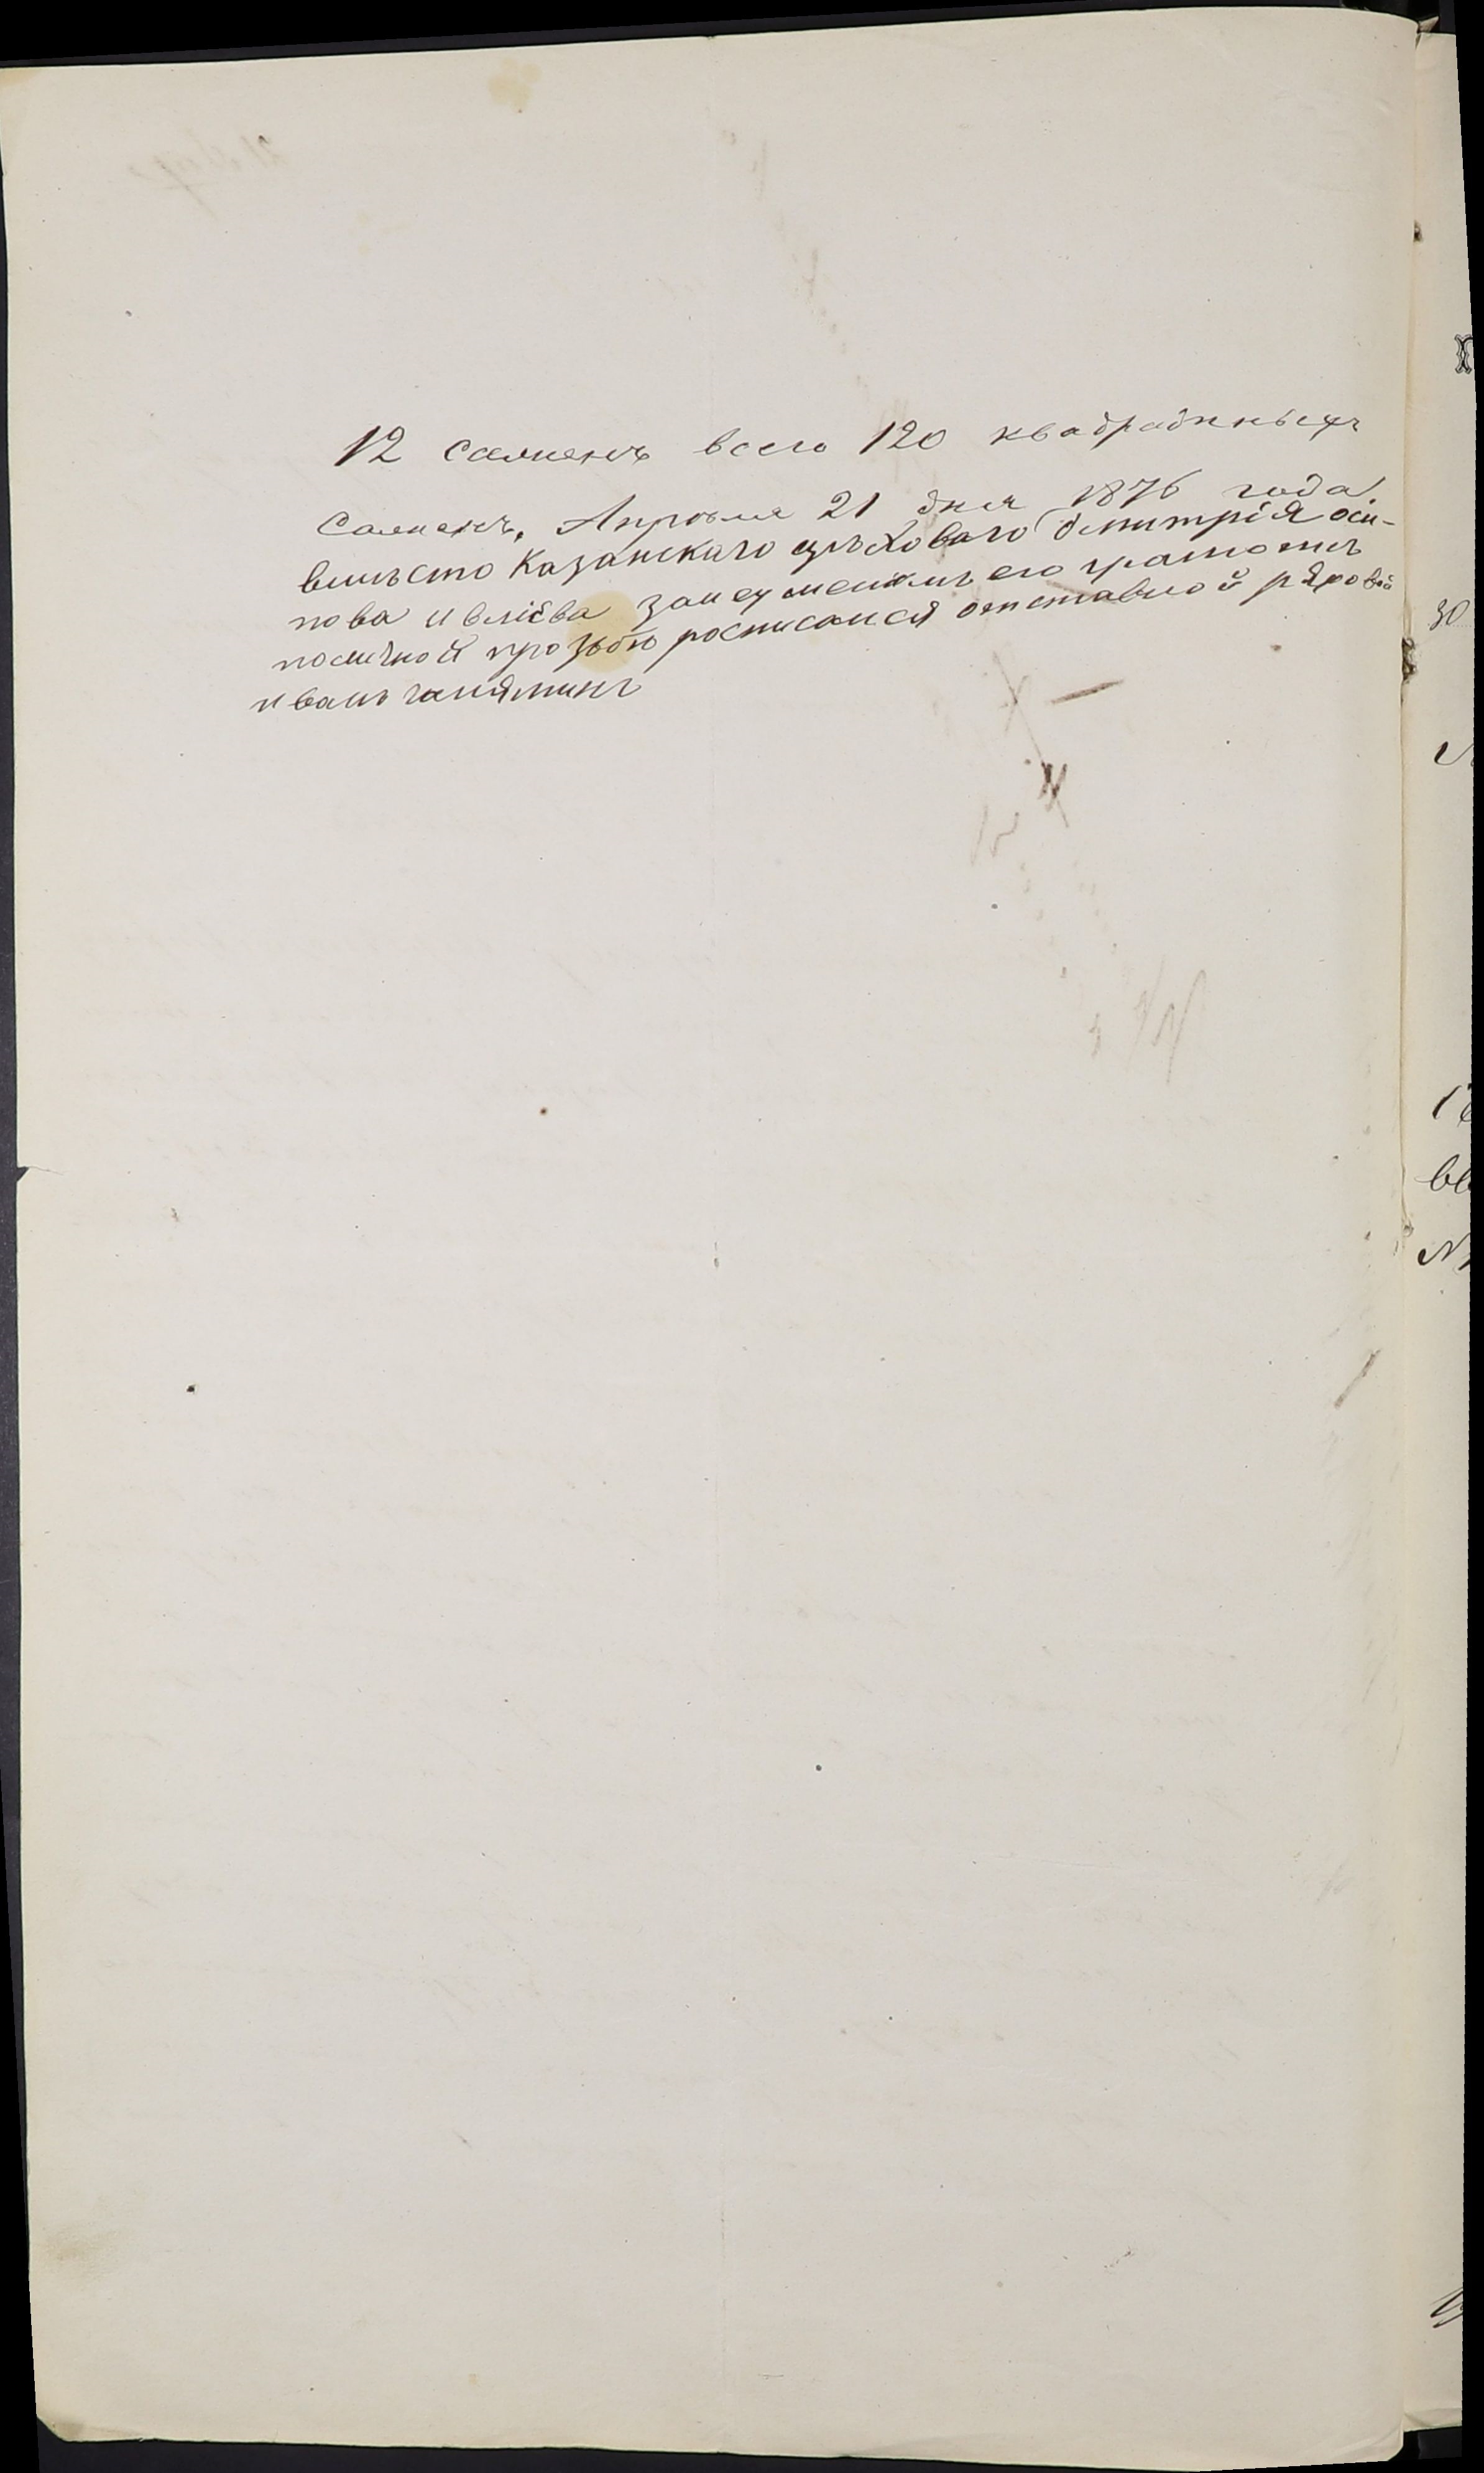 12 сажень всего 120 квадратныхъ
сажень. Апрѣля 21 дня 1876 года.
вмѣсто Казанскаго цѣховаго дмитрія оси-
пова ивлiева занеуменiемъ его грамотѣ
поличной прозьбѣ росписался отставной рядовой
иванъ